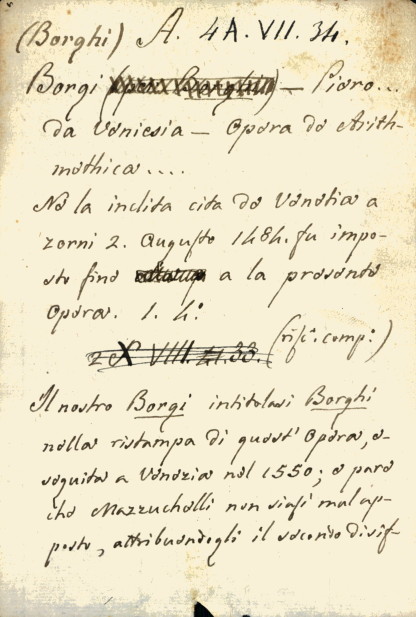 (Borghi) A. 4A. VII. 34.
Borgi (per Borghi) — Piero...
da Veniesia — Opera de Arith-
methica....
Ne la inclita cita de Venetia a
zorni 2. Augusto 1484. fu impo-
sto fine a la presente
Opera. 1. 4.º
2 X VIII. 21. 33.
(rist.ª comp:)
Il nostro Borgi intitolasi Borghi
nella ristampa di quest' Opera, e-
seguita a Venezia nel 1550; e pare
che Mazzuchelli non siasi mal ap-
posto, attribuendogli il secondo disif-